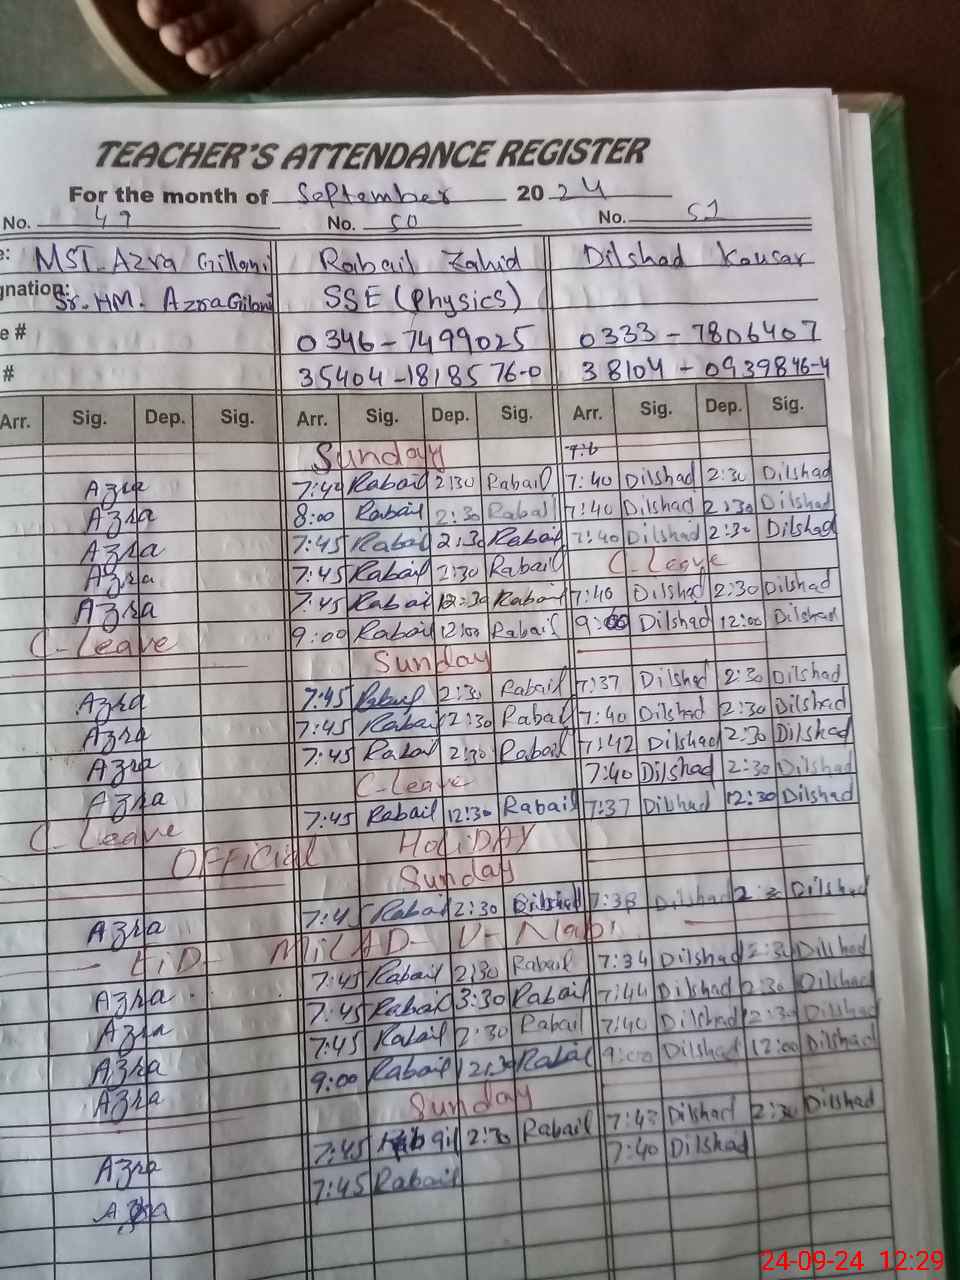 TEACHER'S ATTENDANCE REGISTER
For the month of September 2024
No. 49 No. 50 No. 51
e: MST. Azra Gillani Rabail Zahid Dilshad Kousar
gnation: Sr. HM. Azra Gilani SSE (Physics)
e # 0346-7499025 0333-7806407
# 35404-1818576-0 38104-0939846-4
Arr. Sig. Dep. Sig. Arr. Sig. Dep. Sig. Arr. Sig. Dep. Sig.
Sunday
Azra 7:40 Rabail 2:30 Rabail 7:40 Dilshad 2:30 Dilshad
Azra 8:00 Rabail 2:30 Rabail 7:40 Dilshad 2:30 Dilshad
Azra 7:45 Rabail 2:30 Rabail 7:40 Dilshad 2:30 Dilshad
Azra 7:45 Rabail 2:30 Rabail C-Leave
Azra 7:45 Rabail 12:30 Rabail 7:40 Dilshad 2:30 Dilshad
C-Leave 9:00 Rabail 12:00 Rabail 9:00 Dilshad 12:00 Dilshad
Sunday
Azra 7:45 Rabail 2:30 Rabail 7:37 Dilshad 2:30 Dilshad
Azra 7:45 Rabail 2:30 Rabail 7:40 Dilshad 2:30 Dilshad
Azra 7:45 Rabail 2:30 Rabail 7:42 Dilshad 2:30 Dilshad
Azra C-Leave 7:40 Dilshad 2:30 Dilshad
C-Leave 7:45 Rabail 12:30 Rabail 7:37 Dilshad 12:30 Dilshad
OFFicial HoliDAY
Sunday
Azra 7:45 Rabail 2:30 7:38 Dilshad Dilshad
EiD- MiLAD- U- Nabi
Azra 7:45 Rabail 2:30 Rabail 7:34 Dilshad 2:30 Dilshad
Azra 7:45 Rabail 3:30 Rabail 7:44 Dilshad 2:30 Dilshad
Azra 7:45 Rabail 2:30 Rabail 7:40 Dilshad 2:30 Dilshad
Azra 9:00 Rabail 12:30 Rabail 9:00 Dilshad 12:00 Dilshad
Sunday
Azra 7:45 Rabail 2:30 Rabail 7:43 Dilshad 2:30 Dilshad
Azra 7:45 Rabail 7:40 Dilshad
24-09-24 12:29